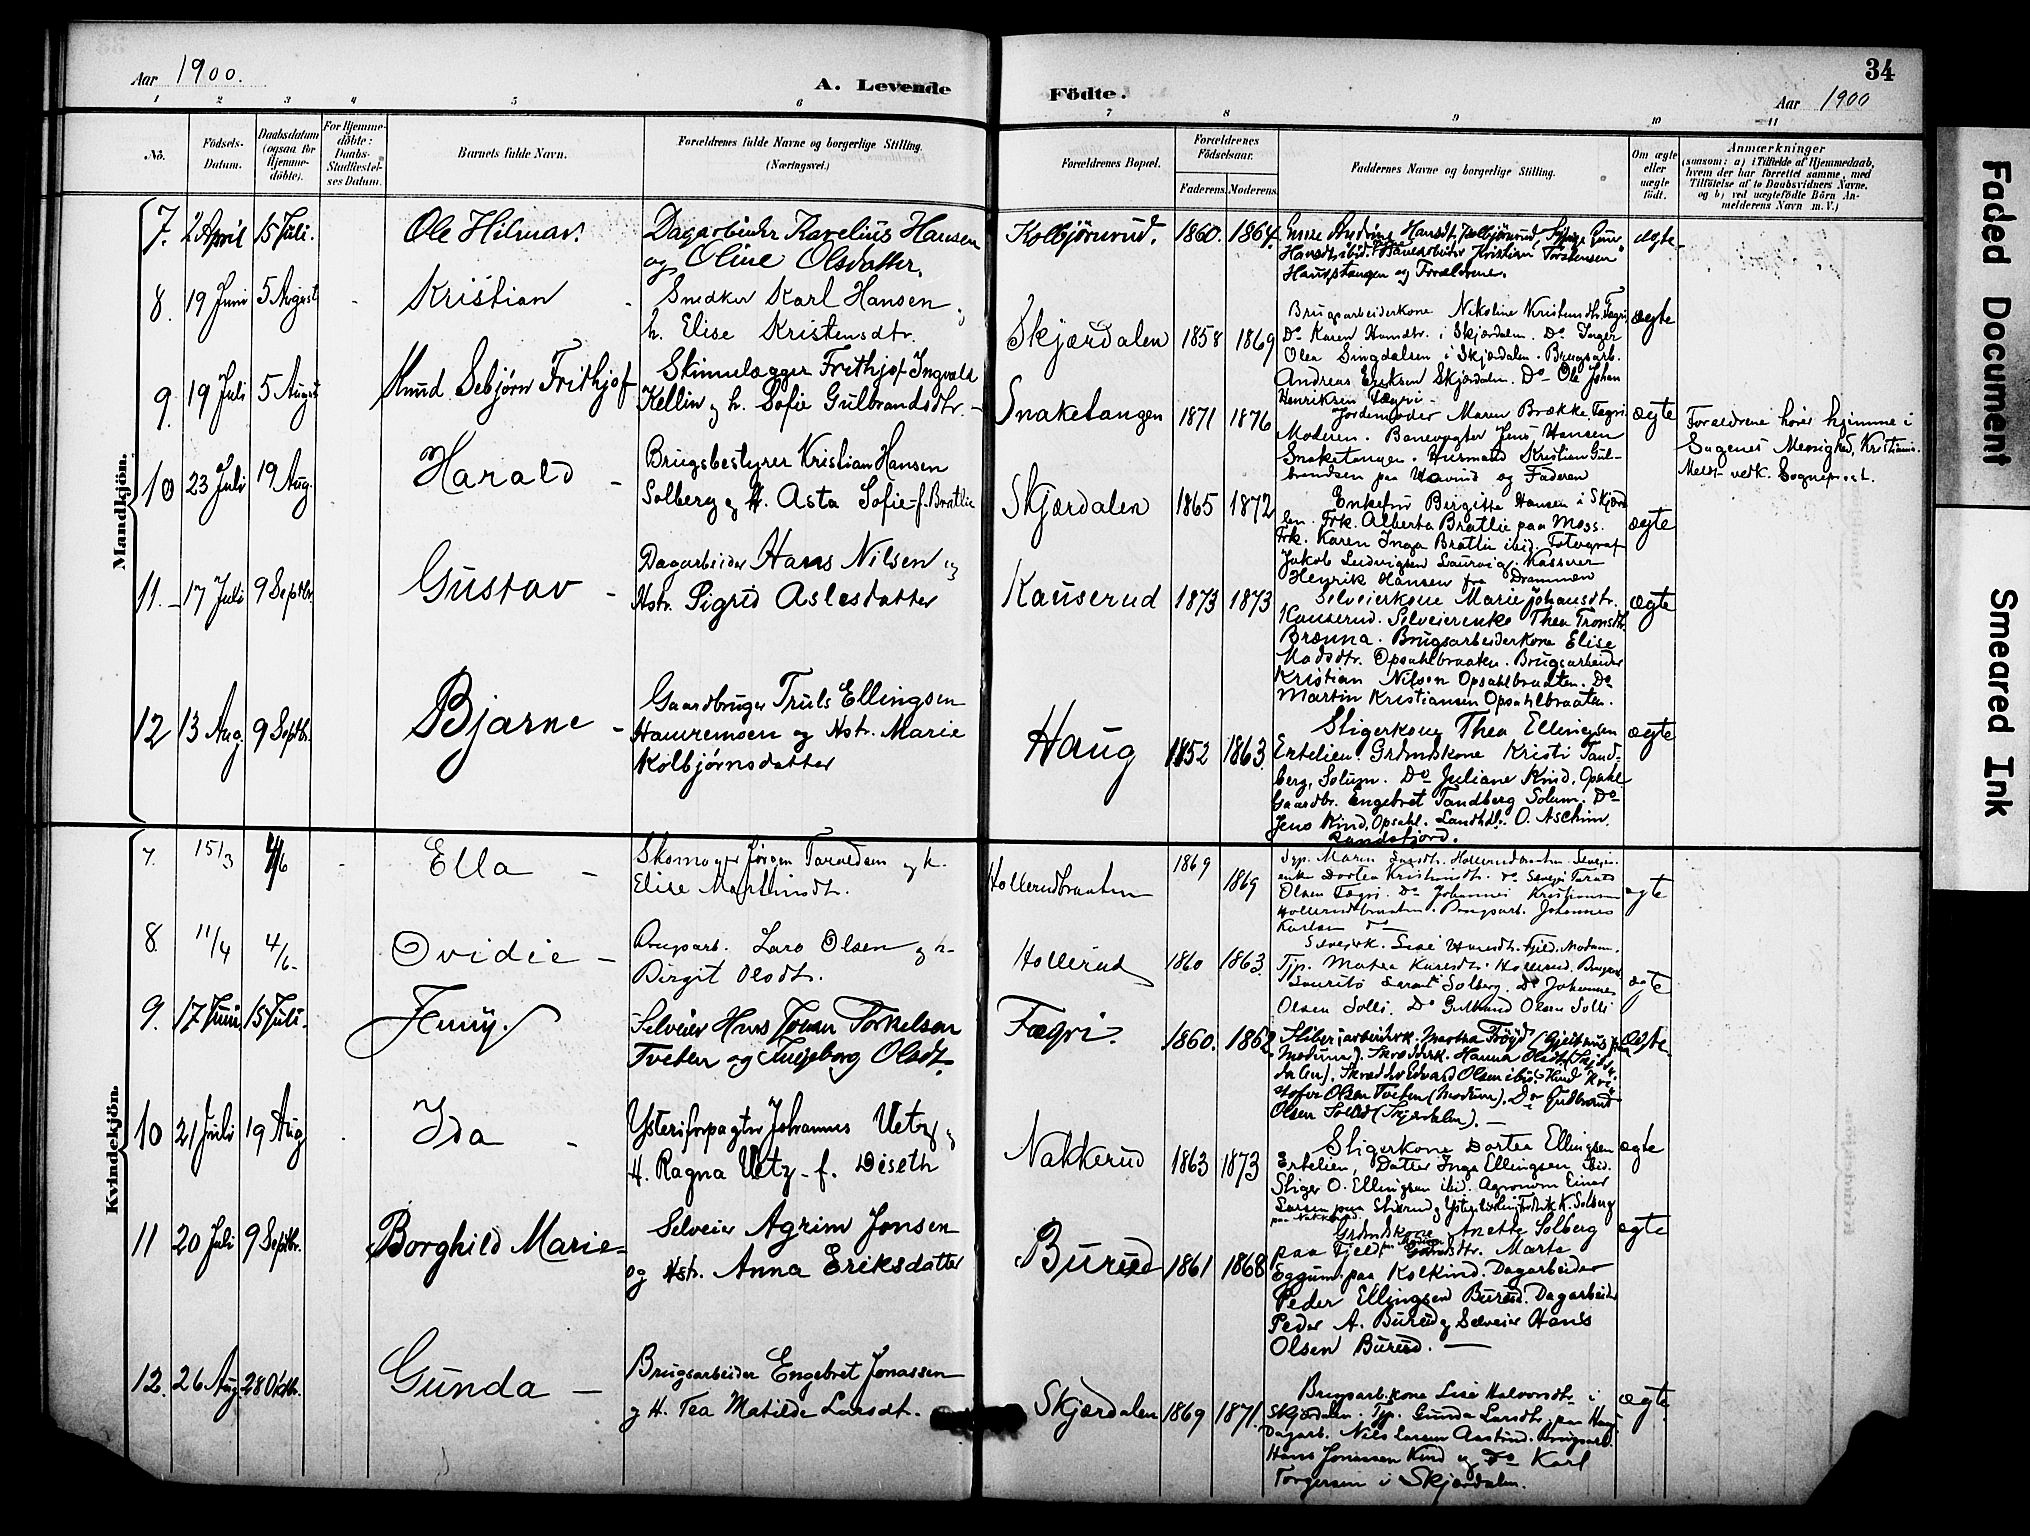 Aar 1900.
A. Levende
Födte.
34
Aar 1900
1 2 3 4 5 6 7 8 9 10 11
No.
Födsels-Datum.
Daabsdatum (ogsaa for Hjemmedöbte).
For Hjemmedöbte: Daabs-Stadfestelses Datum.
Barnets fulde Navn.
Forældrenes fulde Navne og borgerlige Stilling. (Næringsvei.)
Forældrenes Bopæl.
Forældrenes Födselsaar.
Faderens. Moderens.
Faddernes Navne og borgerlige Stilling.
Om ægte eller uægte født.
Anmærkninger
(saasom: a) i Tilfælde af Hjemmedaab, hvem der har forrettet samme, med Tilföielse af to Daabsvidners Navne, og b) ved uægtefödte Börn Anmelderens Navn m. V.)
Mandkjön.
7. 2 April 15 Juli. Ole Hilmar.
Dagarbeider Karelius Hansen
og Oline Olsdatter.
Kolbjörnrud. 1860. 1864.
Hansdt. Kolbjörnrud,
Hansdt. ibid. Banearbeider Kristian Torstensen
Haugstangen og Forældrene.
ægte
8. 19 Juni 5 August Kristian
Snedker Karl Hansen
h. Elise Kristensdtr.
Skjærdalen 1858 1869
Brugsarbeiderkone Nikoline Kristensdtr. Fægri
Do Karen Hansdtr. i Skjærdalen. Do Inger
Olea Singdalsen i Skjærdalen. Brugsarb.
Andreas Eriksen Skjærdalen. Do Ole Johan
Henriksen Fægri.
ægte
9. 19 Juli 5 August Knud Sebjørn Frithjof
Frithjof Ingvald
Kellin og h. Sofie Gulbrandsdtr.
Snaketangen 1871 1876
Jordemoder Maren Brække Fægri.
Moderen. Banevogter Jens Hansen
Snaketangen. Husmand Kristian Gul-
brandsen paa Havind og Faderen
ægte
Forældrene hører hjemme i
Sagenes Menighed, Kristiania.
Meldt vedk. Sogneprest.
10 23 Juli 19 Aug. Harald
Brugsbestyrer Kristian Hansen
Solberg og H. Asta Sofie f. Bratlie
Skjærdalen 1865 1872
Enkefru Birgitte Hansen i Skjærda-
len. Frk. Alberta Bratlie paa Moss.
Frk. Karen Inga Bratlie ibid. Fotograf
Jakob Ludvigsen Laurvig. Kasserer
Henrik Hansen fra Drammen
ægte
11. 17 Juli 9 Septbr. Gustav
Dagarbeider Hans Nilsen og
Hstr. Sigrid Aslesdatter
Kauserud 1873 1873
Selveierkone Marie Johansdtr.
Kauserud. Selveierenke Thea Tronsdtr.
Brænna. Brugsarbeiderkone Elise
Madsdtr. Opsahlbraaten. Brugsarbeider
Kristian Nilsen Opsahlbraaten. Do
Martin Kristiansen Opsahlbraaten.
ægte
12 13 Aug. 9 Septbr. Bjarne
Gaardbruger Truls Ellingsen
Haugremoen og Hstr. Marie
Kolbjørnsdatter
Haug 1852 1863.
Stigerkone Thea Ellingsen
Ertelien. Grdmdskone Kristi Tand-
berg, Solum. Do Juliane Kind, Opsahl
Gaardbr. Engebret Tandberg Solum. Do
Jens Kind, Opsahl. Landhdl. O. Aschim,
Randsfjord.
ægte
Kvindekjön.
7. 15/3 4/6 Ella
Skomager Jørgen Taraldsen og h.
Elise Martinsdtr.
Hollerudbraaten 1869 1869
Maren Hollerudbraaten.
enke Dortea Kristiansdtr. Do
Olsen Fægri. Do Johannes Kristiansen
Hollerudbraaten. Brugsarb. Johannes
Karlsen Do
ægte
8. 11/4 4/6 Ovidie
Brugsarb. Lars Olsen og h.
Birgit Olsdtr.
Hollerud 1860 1863.
Fjeld, Modum.
Hollerud.
Solberg. Do Johannes
Olsen Solli. Do Gulbrand Olsen Solli
ægte
9. 17 Juni 15 Juli. Jenny.
Selveier Hans Johan Torkelsen
Tveten og Ingeborg Olsdt.
Fægri. 1860. 1862.
Martha Frøyd
Modum). Skrædderk. Hanna Olsdt. (Skjær-
dalen). Skrædder Edvard Olsen ibid.
Olsen Tveten (Modum). Do Gudbrand
Olsen (Skjærdalen).
ægte.
10 21 Juli 19 Aug Ida
Ysteriforpagter Johannes Uetz og
H. Ragna Uetz f. Diseth
Nakkerud 1863 1873
Stigerkone Dortea Ellingsen
Ertelien, Datter Inga Ellingsen ibid.
Stiger O. Ellingsen ibid. Agronom Einar
Larsen paa
paa Nakkerud.
ægte
11 20 Juli 9 Septbr. Borghild Marie
Selveier Agrim Jonsen
og Hstr. Anna Eriksdatter
Burud 1861 1868
Grdmdskone Anette Solberg
paa Fjeld Marte
Eggum paa Kolkind. Dagarbeider
Peder Ellingsen Burud. Dagarbeider
Peder A. Burud og Selveier Hans
Olsen Burud.
ægte
12. 26 Aug. 28 Oktbr. Gunda
Brugsarbeider Engebret Jonassen
og H. Tea Matilde Larsdt.
Skjærdalen 1869 1871.
Brugsarb.kone Lise Halvorsdtr. i
Skjærdalen. Tjp. Gunda Larsdtr. paa Haug
Dagarb. Nils Larsen Aasbind. Brugsarb.
Hans Jonassen Kind og Do Karl
Torgersen i Skjærdalen.
ægte
Faded Document
Smeared Ink